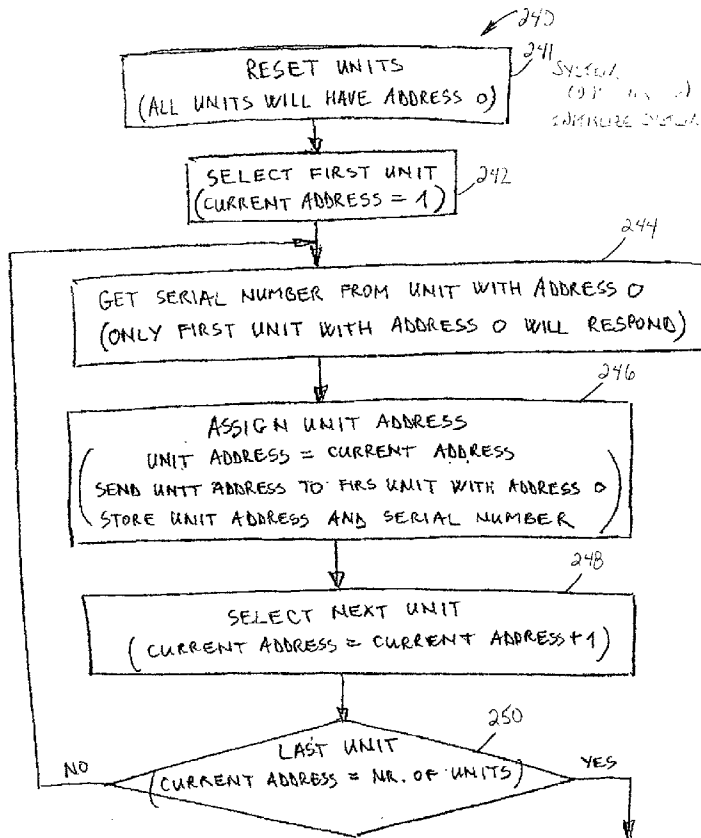 240
RESET UNITS
(ALL UNITS WILL HAVE ADDRESS 0)
241
SYSTEM
INITIALIZE SYSTEM
SELECT FIRST UNIT
(CURRENT ADDRESS = 1)
242
244
GET SERIAL NUMBER FROM UNIT WITH ADDRESS 0
(ONLY FIRST UNIT WITH ADDRESS 0 WILL RESPOND)
246
ASSIGN UNIT ADDRESS
UNIT ADDRESS = CURRENT ADDRESS
SEND UNIT ADDRESS TO FIRS UNIT WITH ADDRESS 0
STORE UNIT ADDRESS AND SERIAL NUMBER
248
SELECT NEXT UNIT
(CURRENT ADDRESS = CURRENT ADDRESS+1)
250
LAST UNIT
(CURRENT ADDRESS = NR. OF UNITS)
NO
YES